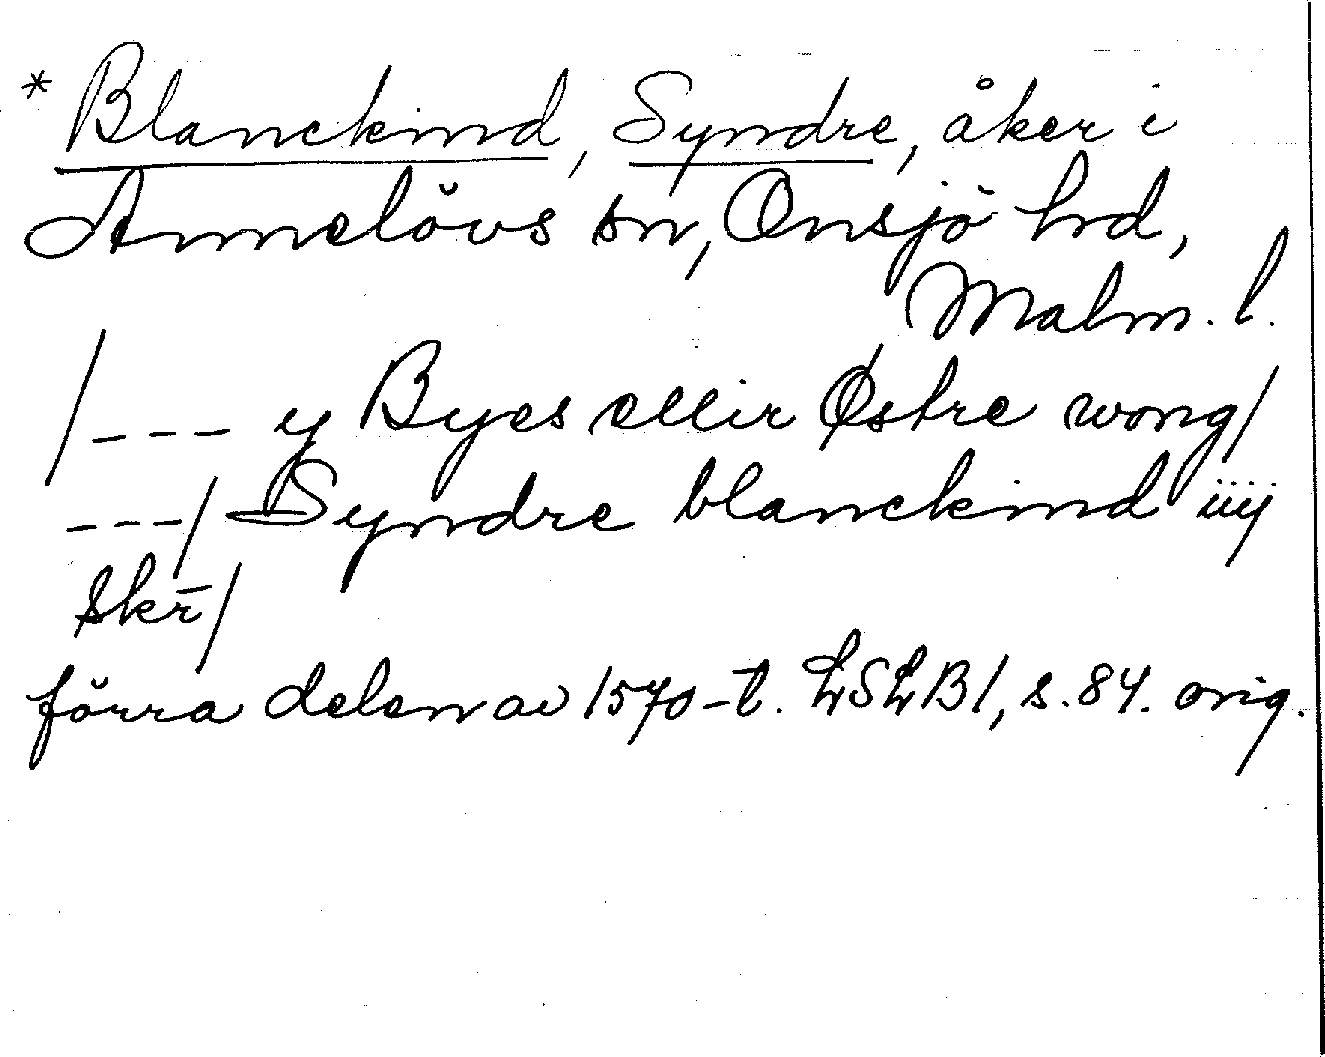 * Blanckind, Syndre, åker i
Annelövs sn, Onsjö hd,
Malm. l.
/--- y Byes ellir Østre wong/
---/ Syndre blanckind iiij
skr̄/
förra delen av 1570-t. LSLB1, s. 84. orig.